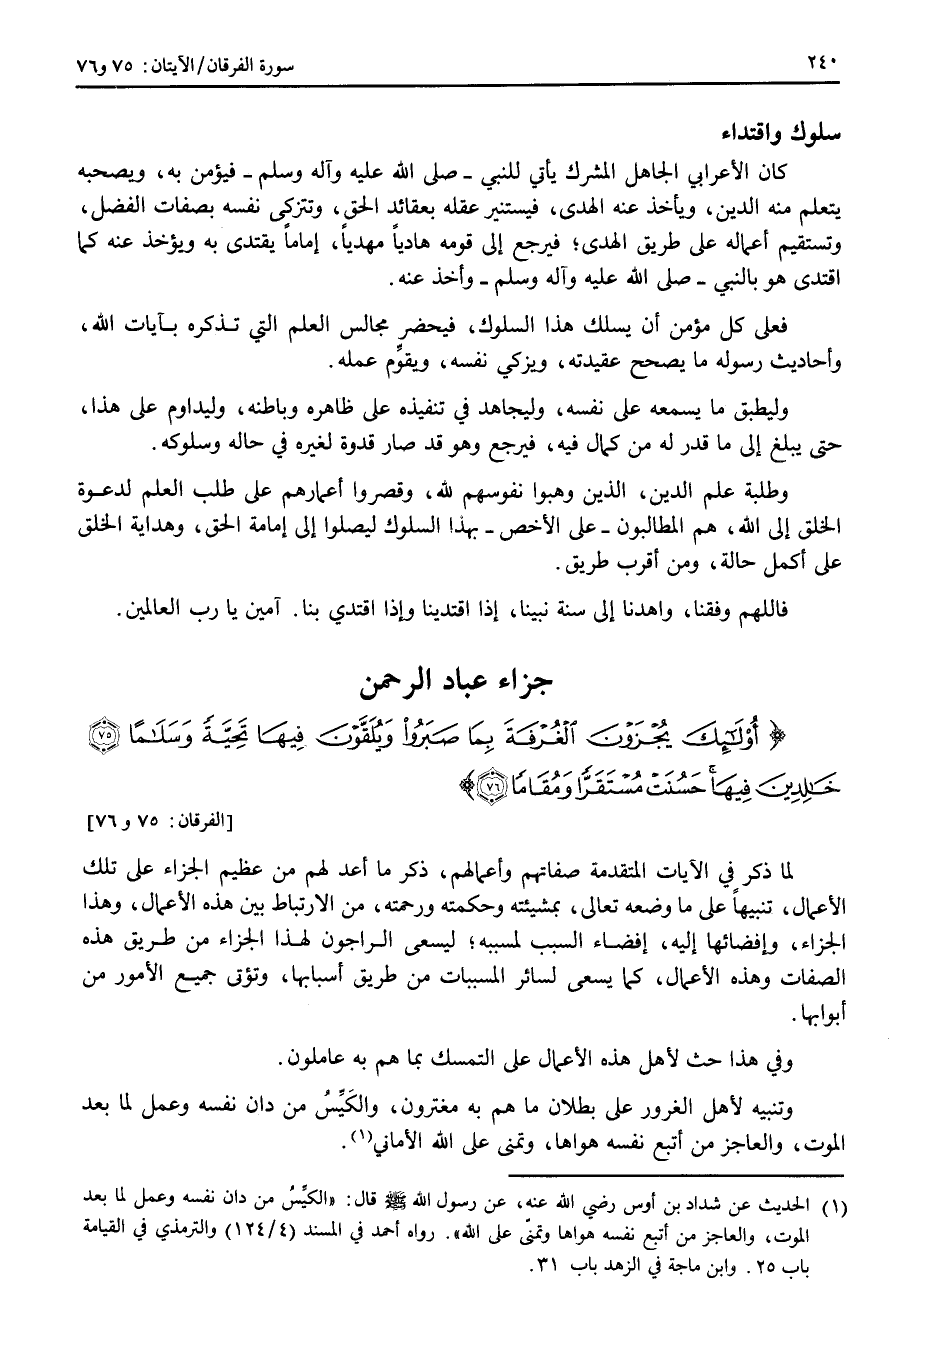 ٢٤٠
سورة الفرقان/الآيتان: ٧٥ و٧٦
سلوك واقتداء
كان الأعرابي الجاهل المشرك يأتي للنبي ـ صلى الله عليه وآله وسلم ـ فيؤمن به، ويصحبه
يتعلم منه الدين، ويأخذ عنه الهدى، فيستنير عقله بعقائد الحق، وتتزكى نفسه بصفات الفضل،
وتستقيم أعماله على طريق الهدى؛ فيرجع إلى قومه هادياً مهدياً، إماماً يقتدى به ويؤخذ عنه كما
اقتدى هو بالنبي ـ صلى الله عليه وآله وسلم ـ وأخذ عنه.
فعلى كل مؤمن أن يسلك هذا السلوك، فيحضر مجالس العلم التي تـذكره بـآيات الله،
وأحاديث رسوله ما يصحح عقيدته، ويزكي نفسه، ويقوِّم عمله.
وليطبق ما يسمعه على نفسه، وليجاهد في تنفيذه على ظاهره وباطنه، وليداوم على هذا،
حتى يبلغ إلى ما قدر له من كمال فيه، فيرجع وهو قد صار قدوة لغيره في حاله وسلوكه.
وطلبة علم الدين، الذين وهبوا نفوسهم لله، وقصروا أعمارهم على طلب العلم لدعـوة
الخلق إلى الله، هم المطالبون ـ على الأخص ـ بهذا السلوك ليصلوا إلى إمامة الحق، وهداية الخلق
على أكمل حالة، ومن أقرب طريق.
فاللهم وفقنا، واهدنا إلى سنة نبينا، إذا اقتدينا وإذا اقتدي بنا. آمين يا رب العالمين.
جزاء عباد الرحمن
﴿ أُوْلَٰٓئِكَ يُجْزَوْنَ ٱلْغُرْفَةَ بِمَا صَبَرُوا۟ وَيُلَقَّوْنَ فِيهَا تَحِيَّةً وَسَلَٰمًا ۝٧٥
خَٰلِدِينَ فِيهَا ۚ حَسُنَتْ مُسْتَقَرًّا وَمُقَامًا ۝٧٦ ﴾
[الفرقان: ٧٥ و ٧٦]
لما ذكر في الآيات المتقدمة صفاتهم وأعمالهم، ذكر ما أعد لهم من عظيم الجزاء على تلك
الأعمال، تنبيهاً على ما وضعه تعالى، بمشيئته وحكمته ورحمته، من الارتباط بين هذه الأعمال، وهذا
الجزاء، وإفضائها إليه، إفضـاء السبب لمسببه؛ ليسعى الـراجون لهـذا الجزاء من طـريق هذه
الصفات وهذه الأعمال، كما يسعى لسائر المسببات من طريق أسبابها، وتؤتى جميـع الأمور من
أبوابها.
وفي هذا حث لأهل هذه الأعمال على التمسك بما هم به عاملون.
وتنبيه لأهل الغرور على بطلان ما هم به مغترون، والكَيِّسُ من دان نفسه وعمل لما بعد
الموت، والعاجز من أتبع نفسه هواها، وتمنى على الله الأماني(١).
(١) الحديث عن شداد بن أوس رضي الله عنه، عن رسول الله ﷺ قال: «الكيِّسُ من دان نفسه وعمل لما بعد
الموت، والعاجز من أتبع نفسه هواها وتمنّى على الله». رواه أحمد في المسند (٤/١٢٤) والترمذي في القيامة
باب ٢٥. وابن ماجة في الزهد باب ٣١.